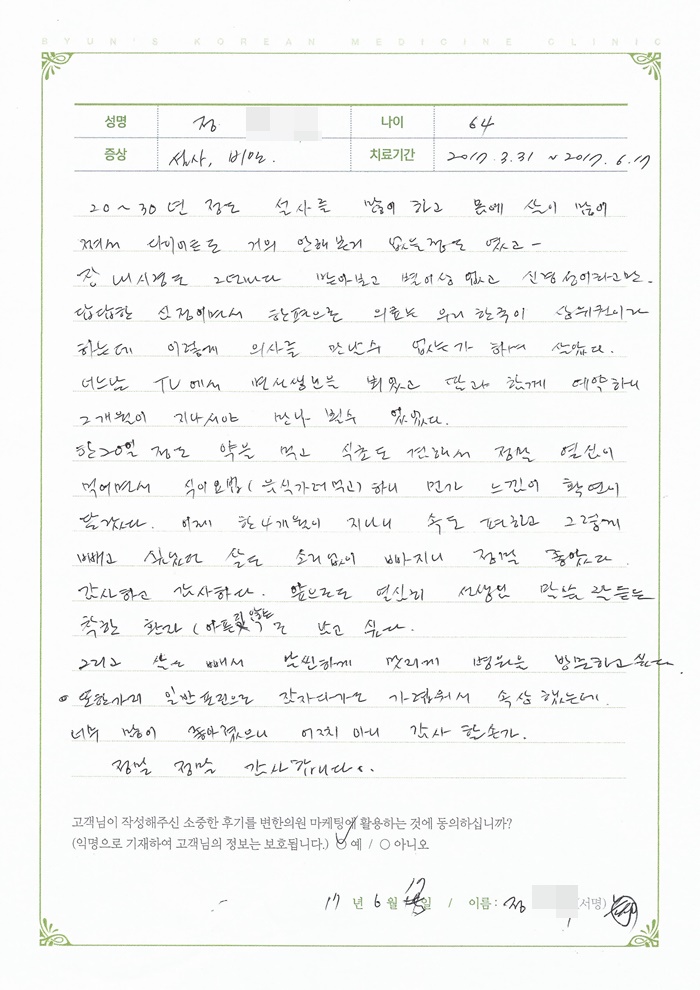 BYUN'S KOREAN MEDICINE CLINIC
성명 정 나이 64
증상 설사, 비만. 치료기간 2017.3.31 ~ 2017.6.17
20~30년 정도 설사를 많이 하고 몸에 살이 많이
쪄서 다이어트도 거의 안해본게 없을정도 였고 -
장 내시경도 2년마다 받아보고 별이상 없고 신경성이라고만.
답답한 심정이면서 한편으로 의료는 우리 한국이 상위권이라
하는데 이렇게 의사를 만날수 없는가 하며 살았다.
어느날 TV에서 변선생님을 뵈었고 딸과 함께 예약하니
2개월이 지나서야 만나 뵐수 있었다.
한20일 정도 약을 먹고 식초도 겸해서 정말 열심히
먹으면서 식이요법(음식가려먹고)하니 먼가 느낌이 확연히
달랐다. 이제 한4개월이 지나니 속도 편하고 그렇게
빼고 싶었던 살도 소리없이 빠지니 정말 좋았다.
감사하고 감사하다. 앞으로도 열심히 선생님 말씀 잘듣는
착한 환자(아프지않는)로 남고 싶다.
그리고 살도 빼서 날씬하게 멋지게 병원을 방문하고 싶다.
또한가지 일반표진으로 잠자다가도 가려워서 속상했는데.
너무 많이 좋아졌으니 어찌 아니 감사 할손가.
정말 정말 감사합니다.
고객님이 작성해주신 소중한 후기를 변한의원 마케팅에 활용하는 것에 동의하십니까?
(익명으로 기재하여 고객님의 정보는 보호됩니다.) 예 / 아니오
17년 6월 17일 / 이름: 정 (서명)